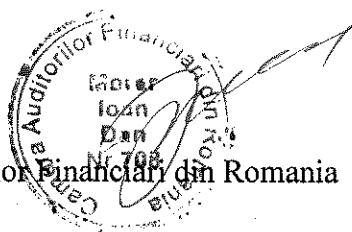 Camera Auditorilor Financiari din Romania
Ioan
Dan
Nr 708
or Financiari din Romania